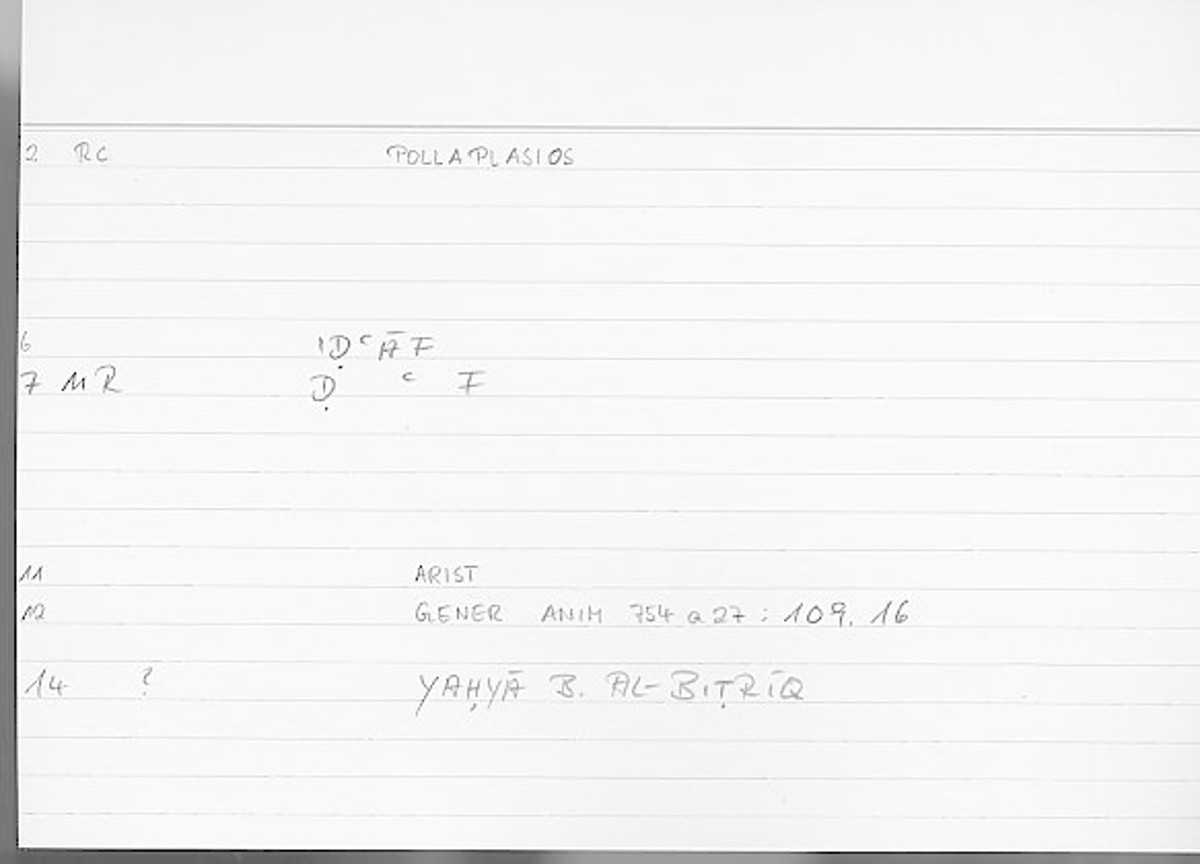 2 RC POLLAPLASIOS
6 IḌʿĀF
7 MR Ḍ ʿ F
11 ARIST
12 GENER ANIM 754 a 27 : 109, 16
14 ? YAḤYĀ B. AL-BIṬRĪQ